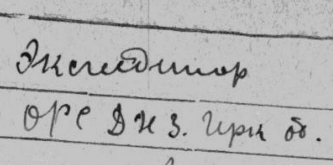 Экспедитор
ОРС ДНЗ. Ирк об.